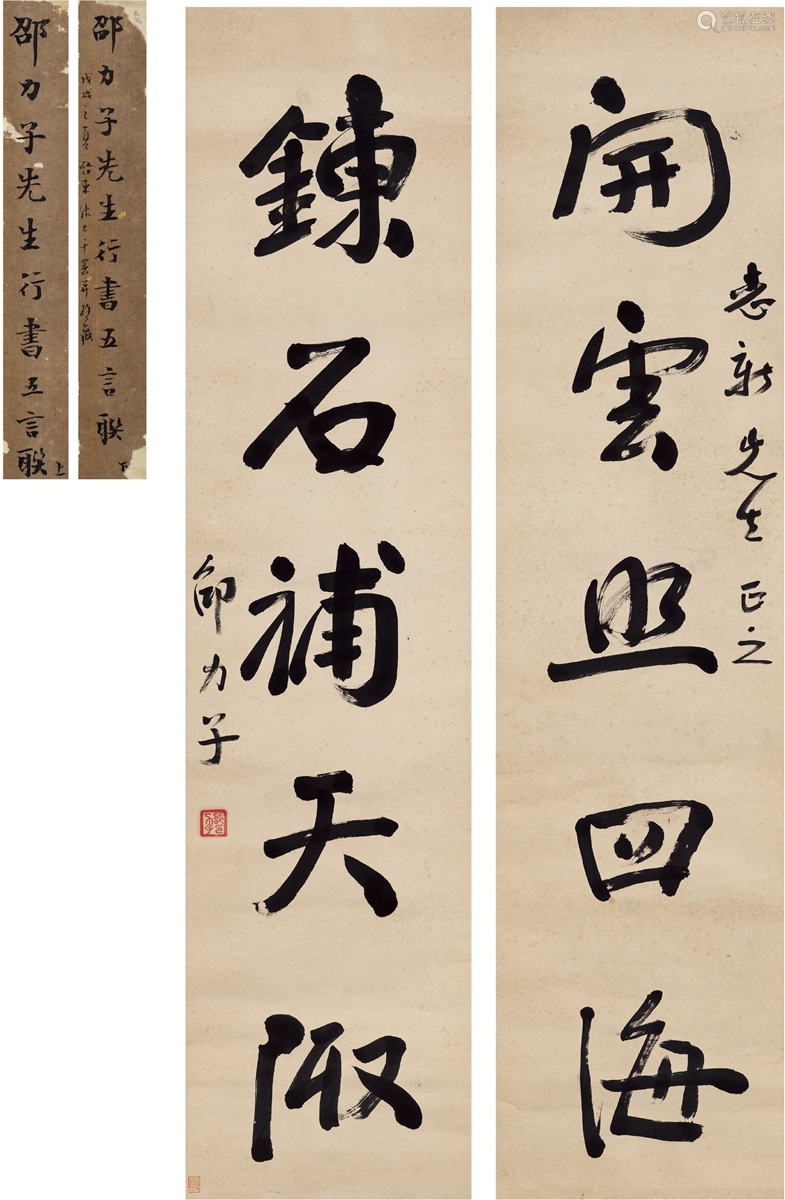 開雲照四海
志新先生正之
鍊石補天陬
邵力子
邵力子先生行書五言聯 下
邵力子先生行書五言聯 上